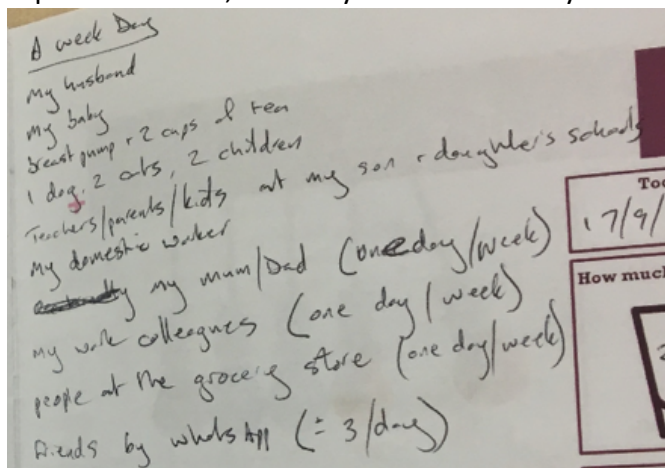 A week Day
My husband
My baby
breast pump + 2 cups of tea
1 dog, 2 cats, 2 children
Teachers/parents/kids at my son + daughter's schools
My domestic worker
my mum/Dad (one day/week)
my work colleagues (one day/week)
people at the grocery store (one day/week)
friends by WhatsApp (÷ 3/day)
17/9/
How much